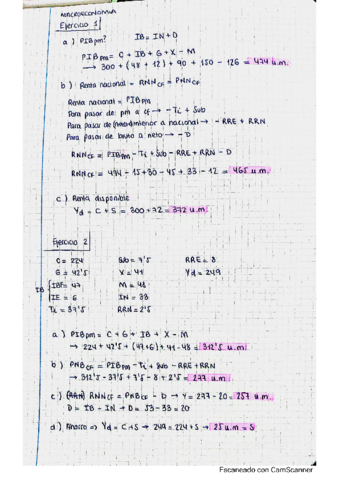 MACROECONOMIA
Ejercicio 1
a) PIBpm? IB = IN + D
PIBpm = C + IB + G + X - M
→ 300 + (48 + 12) + 90 + 150 - 126 = 474 u.m.
b) Renta nacional = RNNCF = PNNCF
Renta nacional = PIBpm
Para pasar de pm a cf → - Ti + Sub
Para pasar de interior a nacional → - RRE + RRN
Para pasar de bruto a neto → - D
RNNCF = PIBpm - Ti + Sub - RRE + RRN - D
RNNCF = 474 - 15 + 30 - 45 + 33 - 12 = 465 u.m.
c) Renta disponible
Yd = C + S = 300 + 72 = 372 u.m.
Ejercicio 2
C = 224 Sub = 7'5 RRE = 8
G = 42'5 X = 41 Yd = 249
IB IBF = 47 M = 48
IE = 6 IN = 33
Ti = 37'5 RRN = 2'5
a) PIBpm = C + G + IB + X - M
→ 224 + 42'5 + (47+6) + 41 - 48 = 312'5 u.m.
b) PNBCF = PIBpm - Ti + Sub - RRE + RRN
→ 312'5 - 37'5 + 7'5 - 8 + 2'5 = 277 u.m.
c) RNNCF = PNBCF - D → Y = 277 - 20 = 257 u.m.
D = IB - IN → D = 53 - 33 = 20
d) Ahorro => Yd = C + S → 249 = 224 + S → 25 u.m = S
Escaneado con CamScanner